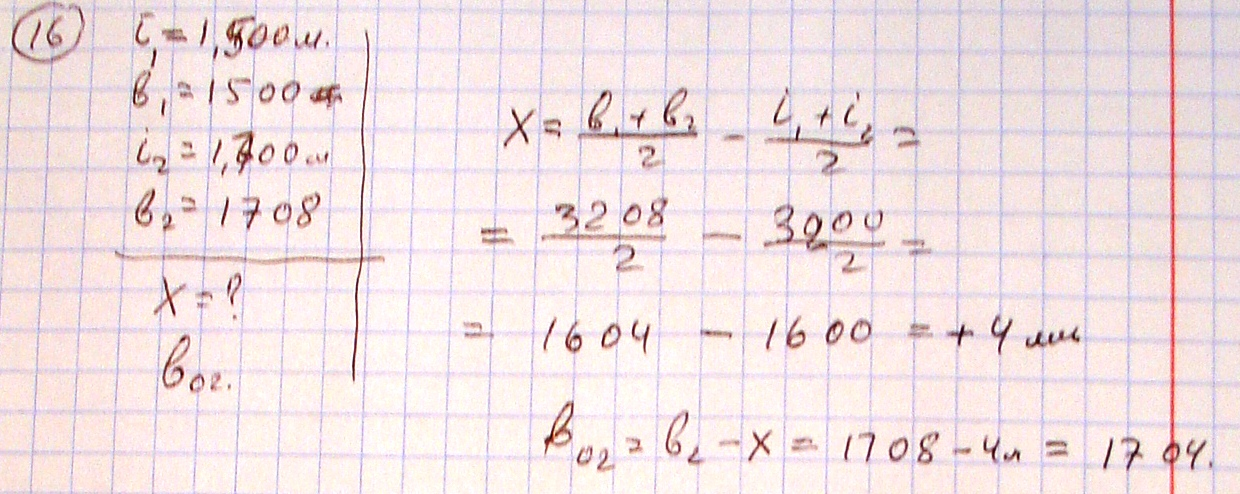 16 i₁ = 1,500 м.
в₁ = 1500
i₂ = 1,700 м
в₂ = 1708
X = ?
в₀₂.
X = (в₁ + в₂)/2 − (i₁ + i₂)/2 =
= 3208/2 − 3200/2 =
= 1604 − 1600 = +4 мм
в₀₂ = в₂ − X = 1708 − 4м = 1704.